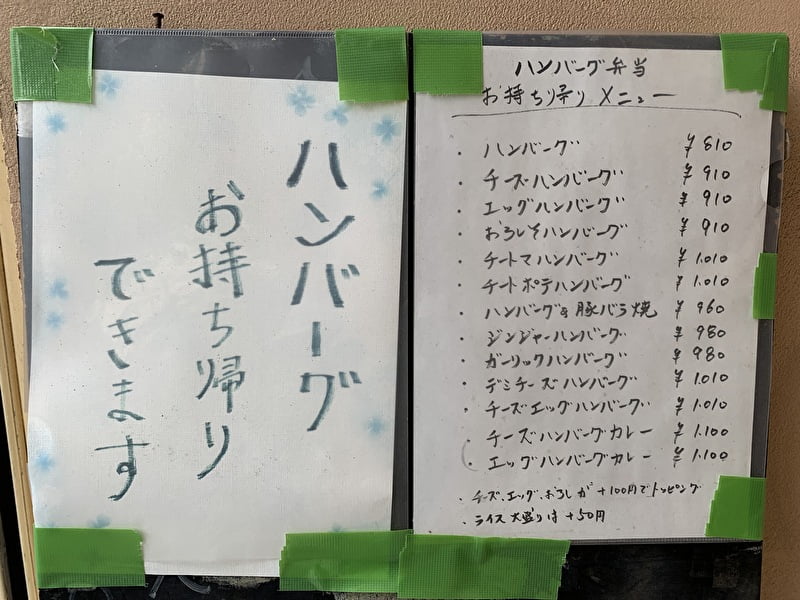 ハンバーグ
お持ち帰り
できます
ハンバーグ弁当
お持ち帰りメニュー
・ハンバーグ ¥810
・チーズハンバーグ ¥910
・エッグハンバーグ ¥910
・おろしそハンバーグ ¥910
・チートマハンバーグ ¥1.010
・チートポテハンバーグ ¥1.010
・ハンバーグ&豚バラ焼 ¥960
・ジンジャーハンバーグ ¥980
・ガーリックハンバーグ ¥980
・デミチーズハンバーグ ¥1.010
・チーズエッグハンバーグ ¥1.010
・チーズハンバーグカレー ¥1.100
・エッグハンバーグカレー ¥1.100
・チーズ、エッグ、おろしが+100円でトッピング
・ライス大盛りは+50円